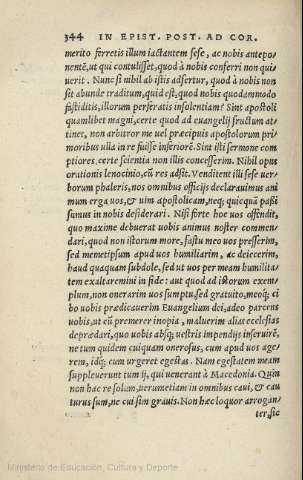 344 IN EPIST. POST. AD COR.
merito ferretis illum iactantem sese, ac nobis antepo-
nentē, ut qui contulisset, quod à nobis conferri non qui-
uerit. Nunc si nihil ab istis adfertur, quod à nobis non
sit abunde traditum, quid est, quod nobis quodammodo
fastiditis, illorum perferatis insolentiam? Sint apostoli
quamlibet magni, certe quod ad euangelij fructum at-
tinet, non arbitror me uel præcipuis apostolorum pri-
moribus ulla in re fuisse inferiorē. Sint isti sermone com-
ptiores, certe scientia non illis concesserim. Nihil opus
orationis lenocinio, cū res adsit. Venditent illi sese uer-
borum phaleris, nos omnibus officijs declarauimus ani-
mum erga uos, & uim apostolicam, neq; quicquā passi
sumus in nobis desiderari. Nisi forte hoc uos offendit,
quo maxime debuerat uobis animus noster commen-
dari, quod non istorum more, fastu meo uos presserim,
sed memetipsum apud uos humiliarim, ac deiecerim,
haud quaquam subdole, sed ut uos per meam humilita-
tem exaltaremini in fide: aut quod ad istorum exem-
plum, non onerarim uos sumptu, sed gratuito, meoq; ci-
bo uobis prædicauerim Euangelium dei, adeo parcens
uobis, ut cū premerer inopia, maluerim alias ecclesias
deprædari, quo uobis absq; uestris impendijs inseruirē,
ne tum quidem cuiquam onerosus, cum apud uos age-
rem, idq; cum urgeret egestas. Nam egestatem meam
suppleuerunt tum ij, qui uenerant à Macedonia. Quin
non hac re solum, uerumetiam in omnibus caui, & cau
turus sum, ne cui sim grauis. Non hæc loquor arrogan-
ter, sic
Ministerio de Educación, Cultura y Deporte